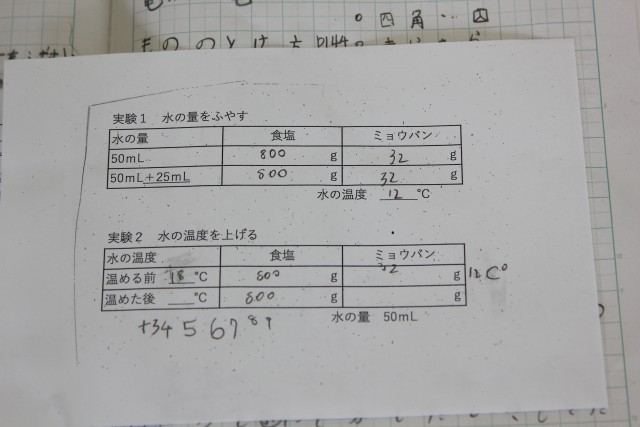 。四角…囚
もののとけ方
実験1 水の量をふやす
水の量 食塩 ミョウバン
50mL 800 g 32 g
50mL+25mL 800 g 32 g
水の温度 12 ℃
実験2 水の温度を上げる
水の温度 食塩 ミョウバン
温める前 18 ℃ 800 g 32 g 12 C°
温めた後 ℃ 800 g g
+34 5 67 89
水の量 50mL